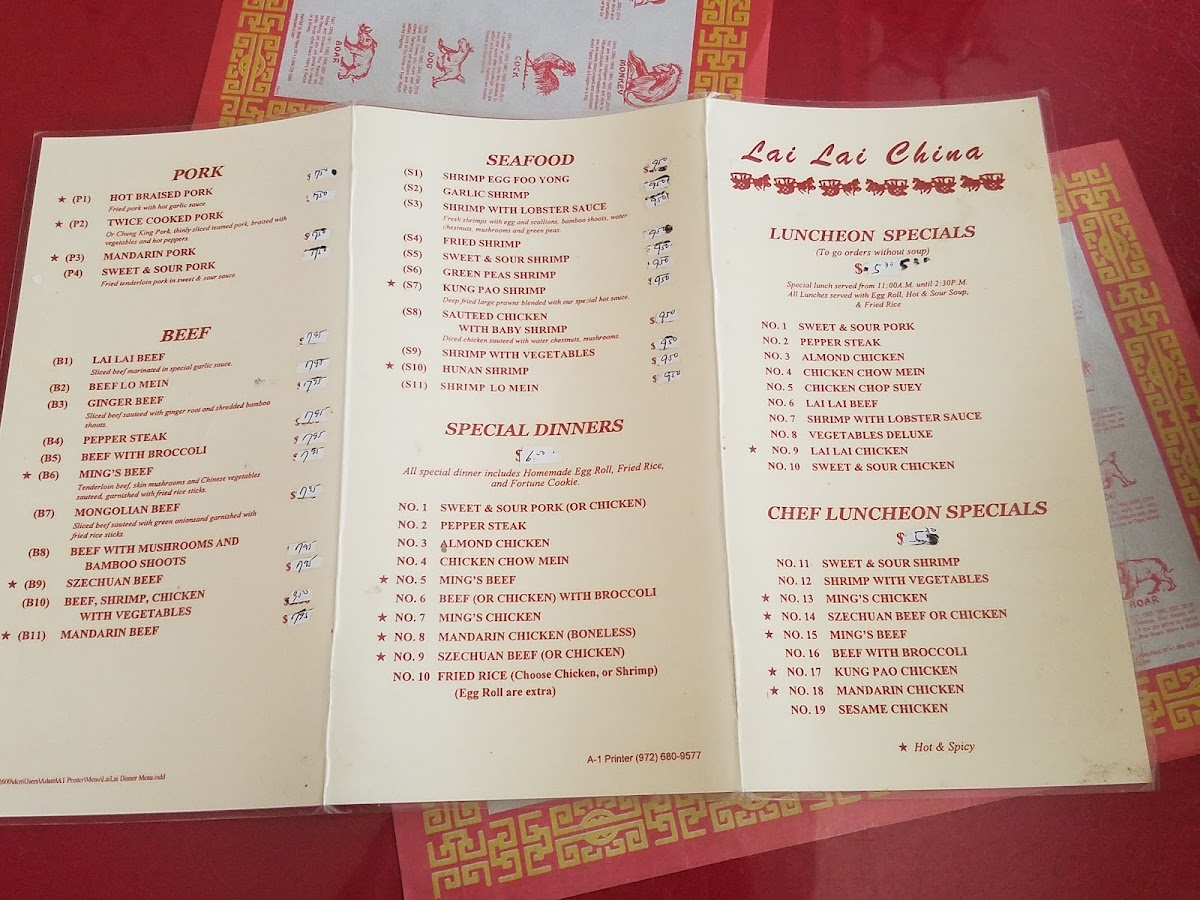 BOAR
DOG
COCK
MONKEY
PORK
★ (P1) HOT BRAISED PORK
Fried pork with hot garlic sauce
★ (P2) TWICE COOKED PORK
Or Chung King Pork, thinly sliced teamed pork, braised with
vegetables and hot peppers.
★ (P3) MANDARIN PORK
(P4) SWEET & SOUR PORK
Fried tenderloin pork in sweet & sour sauce
BEEF
(B1) LAI LAI BEEF $7.95
Sliced beef marinated in special garlic sauce.
(B2) BEEF LO MEIN 7.95
(B3) GINGER BEEF $7.95
Sliced beef sauteed with ginger root and shredded bamboo
shoots.
(B4) PEPPER STEAK $7.95
(B5) BEEF WITH BROCCOLI $7.95
★ (B6) MING'S BEEF $7.95
Tenderloin beef, skin mushrooms and Chinese vegetables
sauteed, garnished with fried rice sticks.
(B7) MONGOLIAN BEEF $7.95
Sliced beef sauteed with green onionsand garnished with
fried rice sticks.
(B8) BEEF WITH MUSHROOMS AND 7.95
BAMBOO SHOOTS
★ (B9) SZECHUAN BEEF $7.95
(B10) BEEF, SHRIMP, CHICKEN
WITH VEGETABLES
★ (B11) MANDARIN BEEF $7.95
Printer\Menu\LaiLai Dinner Menu.indd
SEAFOOD
(S1) SHRIMP EGG FOO YONG $9.50
(S2) GARLIC SHRIMP 9.50
(S3) SHRIMP WITH LOBSTER SAUCE 9.50
Fresh shrimps with egg and scallions, bamboo shoots, water
chestnuts, mushrooms and green peas.
(S4) FRIED SHRIMP
(S5) SWEET & SOUR SHRIMP 9.50
(S6) GREEN PEAS SHRIMP 9.50
★ (S7) KUNG PAO SHRIMP $9.50
Deep fried large prawns blended with our special hot sauce.
(S8) SAUTEED CHICKEN
WITH BABY SHRIMP $9.50
Diced chicken sauteed with water chestnuts, mushrooms.
(S9) SHRIMP WITH VEGETABLES $9.50
★ (S10) HUNAN SHRIMP $9.50
(S11) SHRIMP LO MEIN $9.50
SPECIAL DINNERS
$6.00
All special dinner includes Homemade Egg Roll, Fried Rice,
and Fortune Cookie.
NO. 1 SWEET & SOUR PORK (OR CHICKEN)
NO. 2 PEPPER STEAK
NO. 3 ALMOND CHICKEN
NO. 4 CHICKEN CHOW MEIN
★ NO. 5 MING'S BEEF
NO. 6 BEEF (OR CHICKEN) WITH BROCCOLI
★ NO. 7 MING'S CHICKEN
★ NO. 8 MANDARIN CHICKEN (BONELESS)
★ NO. 9 SZECHUAN BEEF (OR CHICKEN)
NO. 10 FRIED RICE (Choose Chicken, or Shrimp)
(Egg Roll are extra)
A-1 Printer (972) 680-9577
Lai Lai China
LUNCHEON SPECIALS
(To go orders without soup)
$ 5.30
Special lunch served from 11:00A.M. until 2:30P.M.
All Lunches served with Egg Roll, Hot & Sour Soup,
& Fried Rice
NO. 1 SWEET & SOUR PORK
NO. 2 PEPPER STEAK
NO. 3 ALMOND CHICKEN
NO. 4 CHICKEN CHOW MEIN
NO. 5 CHICKEN CHOP SUEY
NO. 6 LAI LAI BEEF
NO. 7 SHRIMP WITH LOBSTER SAUCE
NO. 8 VEGETABLES DELUXE
★ NO. 9 LAI LAI CHICKEN
NO. 10 SWEET & SOUR CHICKEN
CHEF LUNCHEON SPECIALS
$
NO. 11 SWEET & SOUR SHRIMP
NO. 12 SHRIMP WITH VEGETABLES
★ NO. 13 MING'S CHICKEN
★ NO. 14 SZECHUAN BEEF OR CHICKEN
★ NO. 15 MING'S BEEF
NO. 16 BEEF WITH BROCCOLI
★ NO. 17 KUNG PAO CHICKEN
★ NO. 18 MANDARIN CHICKEN
NO. 19 SESAME CHICKEN
★ Hot & Spicy
BOAR